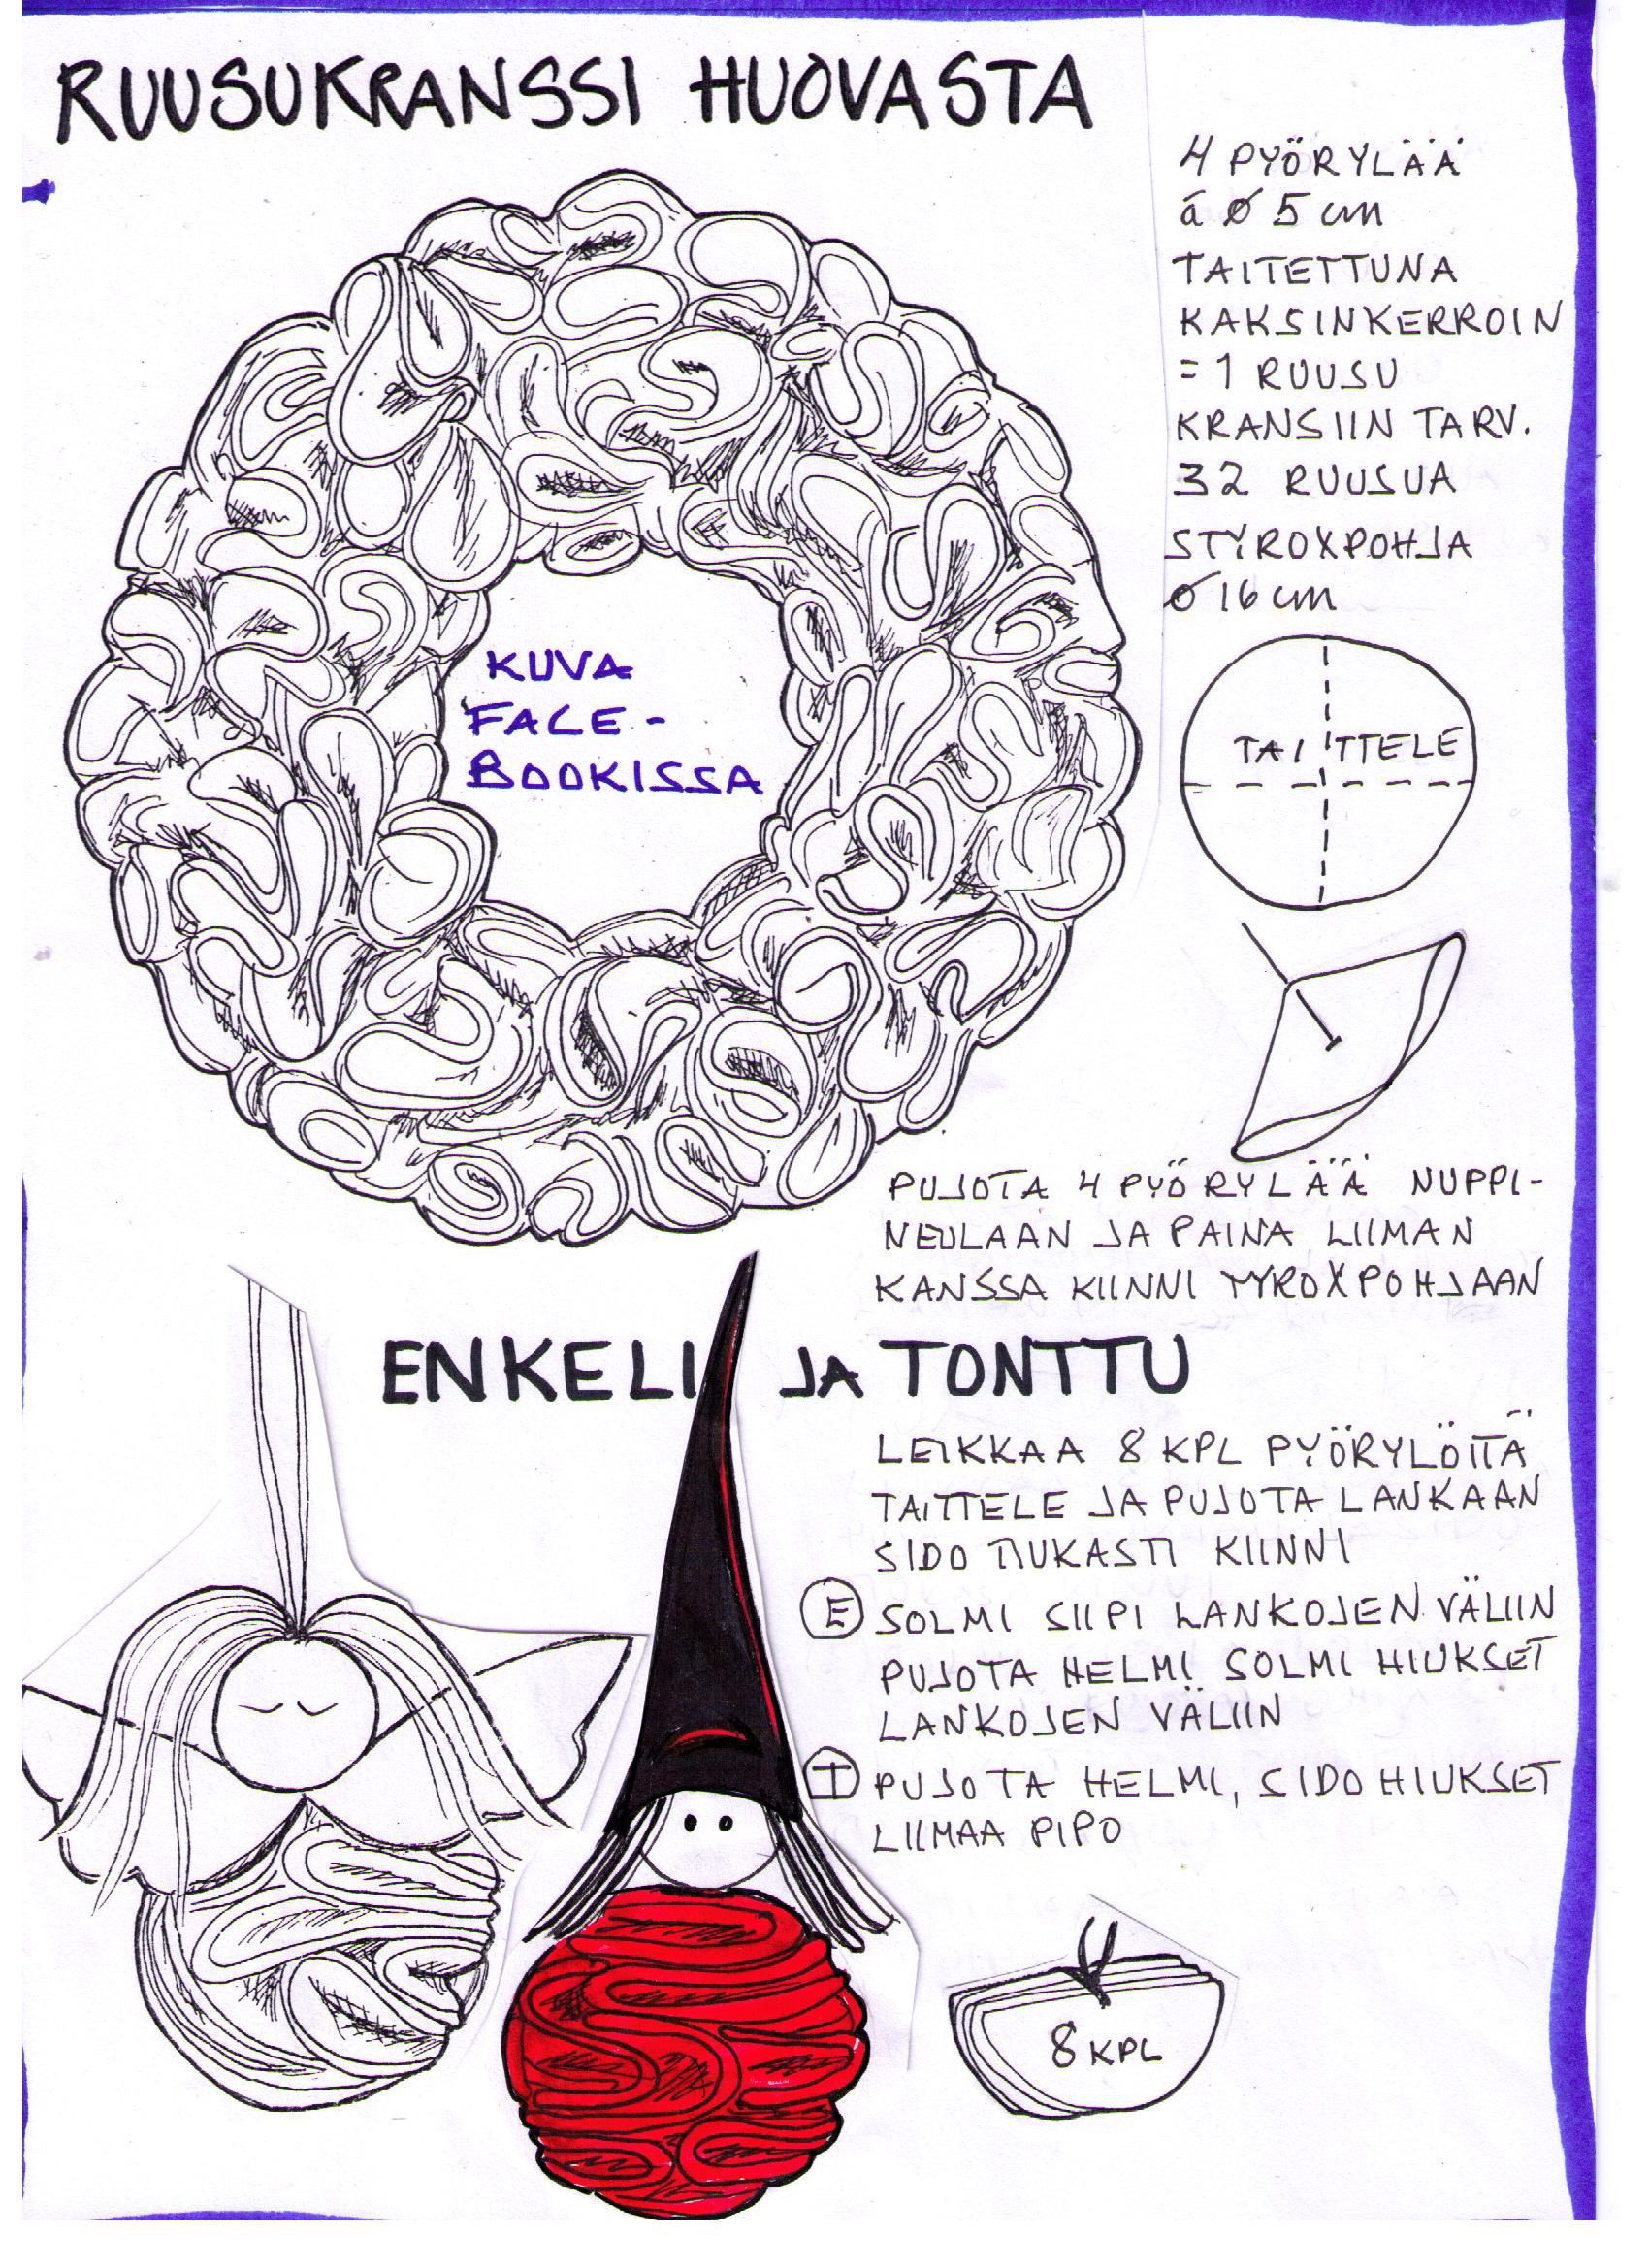 RUUSUKRANSSI HUOVASTA
4 PYÖRYLÄÄ
á Ø 5 cm
TAITETTUNA
KAKSINKERROIN
= 1 RUUSU
KRANSIIN TARV.
32 RUUSUA
STYROXPOHJA
Ø 16 cm
KUVA
FACE-
BOOKISSA
TAITTELE
PUJOTA 4 PYÖRYLÄÄ NUPPI-
NEULAAN JA PAINA LIIMAN
KANSSA KIINNI TYROXPOHJAAN
ENKELI JA TONTTU
LEIKKAA 8 KPL PYÖRYLÖITÄ
TAITTELE JA PUJOTA LANKAAN
SIDO TIUKASTI KIINNI
E SOLMI SIIPI LANKOJEN VÄLIIN
PUJOTA HELMI SOLMI HIUKSET
LANKOJEN VÄLIIN
T PUJOTA HELMI, SIDO HIUKSET
LIIMAA PIPO
8 KPL